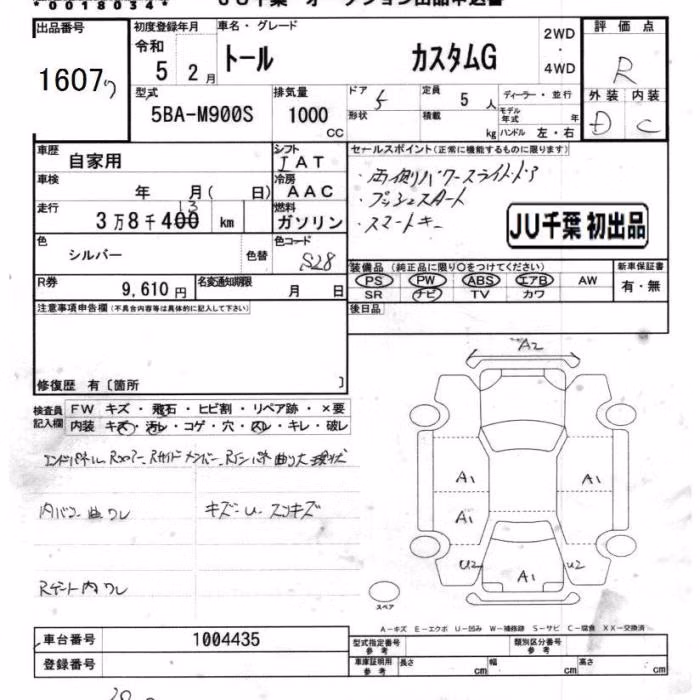 *0018034*
JU千葉 オークション出品申込書
出品番号
1607
初度登録年月
令和
5 2月
車名・グレード
トール カスタムG
2WD
・
4WD
評価点
R
外装 内装
D C
型式
5BA-M900S
排気量
1000
CC
ドア
5
形状
定員
5 人
積載
kg
ディーラー・並行
モデル年式 年
ハンドル 左・右
車歴
自家用
シフト
I AT
車検
年 月( 日)
冷房
AAC
走行
3万8千400 km
13
燃料
ガソリン
色
シルバー
色替
色コード
S28
R券
9,610円
名変通知期限
月 日
セールスポイント(正常に機能するものに限ります)
・両側パワースライドドア
・プッシュスタート
・スマートキー
JU千葉 初出品
装備品(純正品に限り○をつけてください)
PS PW ABS エアB AW
SR ナビ TV カワ
新車保証書
有・無
後日品
注意事項申告欄(不具合内容等は具体的に記入して下さい)
修復歴 有〔箇所 〕
検査員
記入欄
FW キズ・飛石・ヒビ割・リペア跡・×要
内装 キズ・汚レ・コゲ・穴・凹レ・キレ・破レ
エンドパネル Rフロアー Rサイドメンバー 曲り大 現状
内バコ 曲ワレ
キズ・U スリキズ
Rゲート内ワレ
A2
A1
A1
A1
U2
A1
U2
スペア
A-キズ E-エクボ U-凹み W-補修跡 S-サビ C-腐食 XX-交換済
車台番号
1004435
登録番号
型式指定番号
参考
類別区分番号
参考
車庫証明用
参考
長さ cm
幅 cm
高さ cm